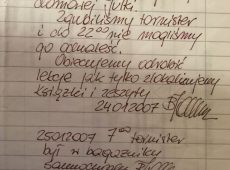 domowej Julki.
Zgubiliśmy tornister
i do 22⁰⁰ nie mogliśmy
go odnaleźć.
Obiecujemy odrobić
lekcje jak tylko zlokalizujemy
książki i zeszyty
24.01.2007
25.01.2007 7⁰⁰ tornister
był w bagażniku
samochodu